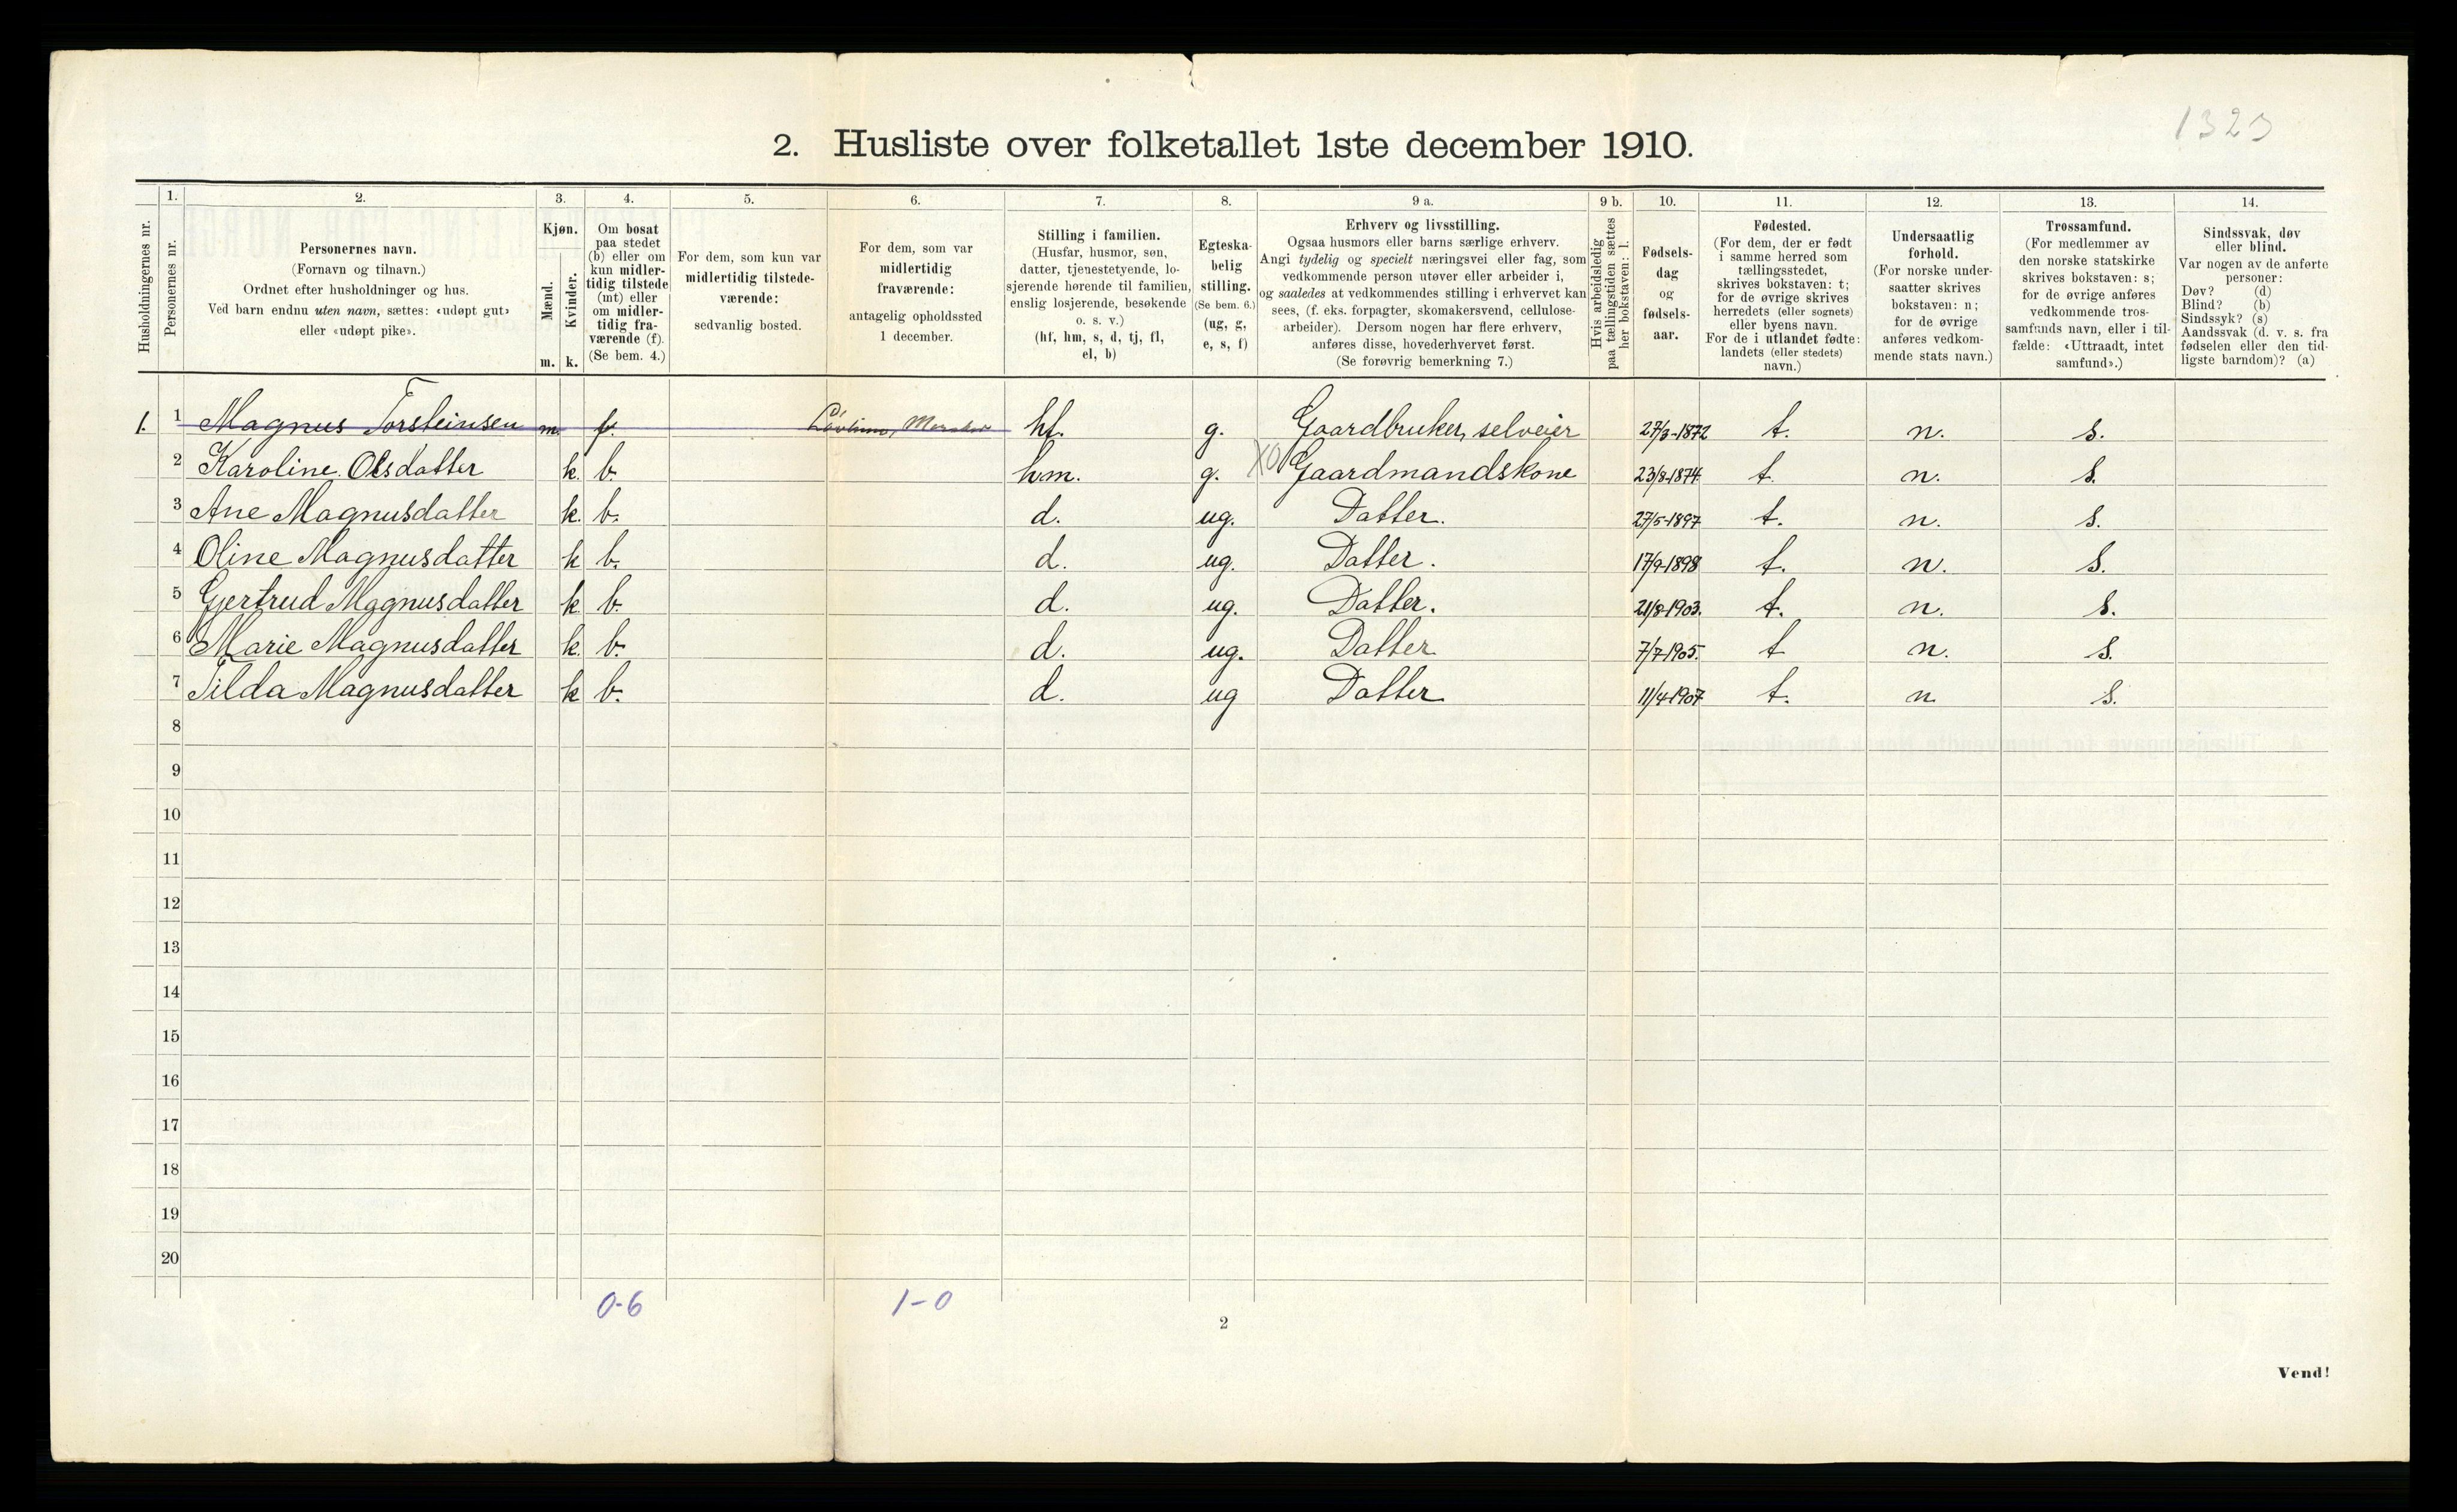 1323
2. Husliste over folketallet 1ste december 1910.
Husholdningernes nr.
1.
Personernes nr.
2.
Personernes navn.
(Fornavn og tilnavn.)
Ordnet efter husholdninger og hus.
Ved barn endnu uten navn, sættes: «udøpt gut»
eller «udøpt pike».
3.
Kjøn.
Mænd.
m.
Kvinder.
k.
4.
Om bosat
paa stedet
(b) eller om
kun midler-
tidig tilstede
(mt) eller
om midler-
tidig fra-
værende (f).
(Se bem. 4.)
5.
For dem, som kun var
midlertidig tilstede-
værende:
sedvanlig bosted.
6.
For dem, som var
midlertidig
fraværende:
antagelig opholdssted
1 december.
7.
Stilling i familien.
(Husfar, husmor, søn,
datter, tjenestetyende, lo-
sjerende hørende til familien,
enslig losjerende, besøkende
o. s. v.)
(hf, hm, s, d, tj, fl,
el, b)
8.
Egteska-
belig
stilling.
(Se bem. 6.)
(ug, g,
e, s, f)
9 a.
Erhverv og livsstilling.
Ogsaa husmors eller barns særlige erhverv.
Angi tydelig og specielt næringsvei eller fag, som
vedkommende person utøver eller arbeider i,
og saaledes at vedkommendes stilling i erhvervet kan
sees, (f. eks. forpagter, skomakersvend, cellulose-
arbeider). Dersom nogen har flere erhverv,
anføres disse, hovederhvervet først.
(Se forøvrig bemerkning 7.)
9 b.
Hvis arbeidsledig
paa tællingstiden sættes
her bokstaven: l.
10.
Fødsels-
dag
og
fødsels-
aar.
11.
Fødested.
(For dem, der er født
i samme herred som
tællingsstedet,
skrives bokstaven: t;
for de øvrige skrives
herredets (eller sognets)
eller byens navn.
For de i utlandet fødte:
landets (eller stedets)
navn.)
12.
Undersaatlig
forhold.
(For norske under-
saatter skrives
bokstaven: n;
for de øvrige
anføres vedkom-
mende stats navn.)
13.
Trossamfund.
(For medlemmer av
den norske statskirke
skrives bokstaven: s;
for de øvrige anføres
vedkommende tros-
samfunds navn, eller i til-
fælde: «Uttraadt, intet
samfund».)
14.
Sindssvak, døv
eller blind.
Var nogen av de anførte
personer:
Døv? (d)
Blind? (b)
Sindssyk? (s)
Aandssvak (d. v. s. fra
fødselen eller den tid-
ligste barndom)? (a)
1. 1 Magnus Torsteinsen m. f. hf. g. Gaardbruker, selveier 27/3-1872 t. n. s.
2 Karoline Olsdatter k. b. hm. g. X0 Gaardmandskone 23/8-1874 t. n. s.
3 Ane Magnusdatter k. b. d. ug. Datter. 27/5-1897 t. n. s.
4 Oline Magnusdatter k b. d. ug. Datter. 17/9-1898 t. n. s.
5 Gjertrud Magnusdatter k. b. d. ug. Datter. 21/8-1903. t. n. s.
6 Marie Magnusdatter k. b. d. ug. Datter 7/7-1905. t n. s.
7 Tilda Magnusdatter k b. d. ug Datter 11/4-1907 t. n s.
8
9
10
11
12
13
14
15
16
17
18
19
20
0-6 1-0
2
Vend!